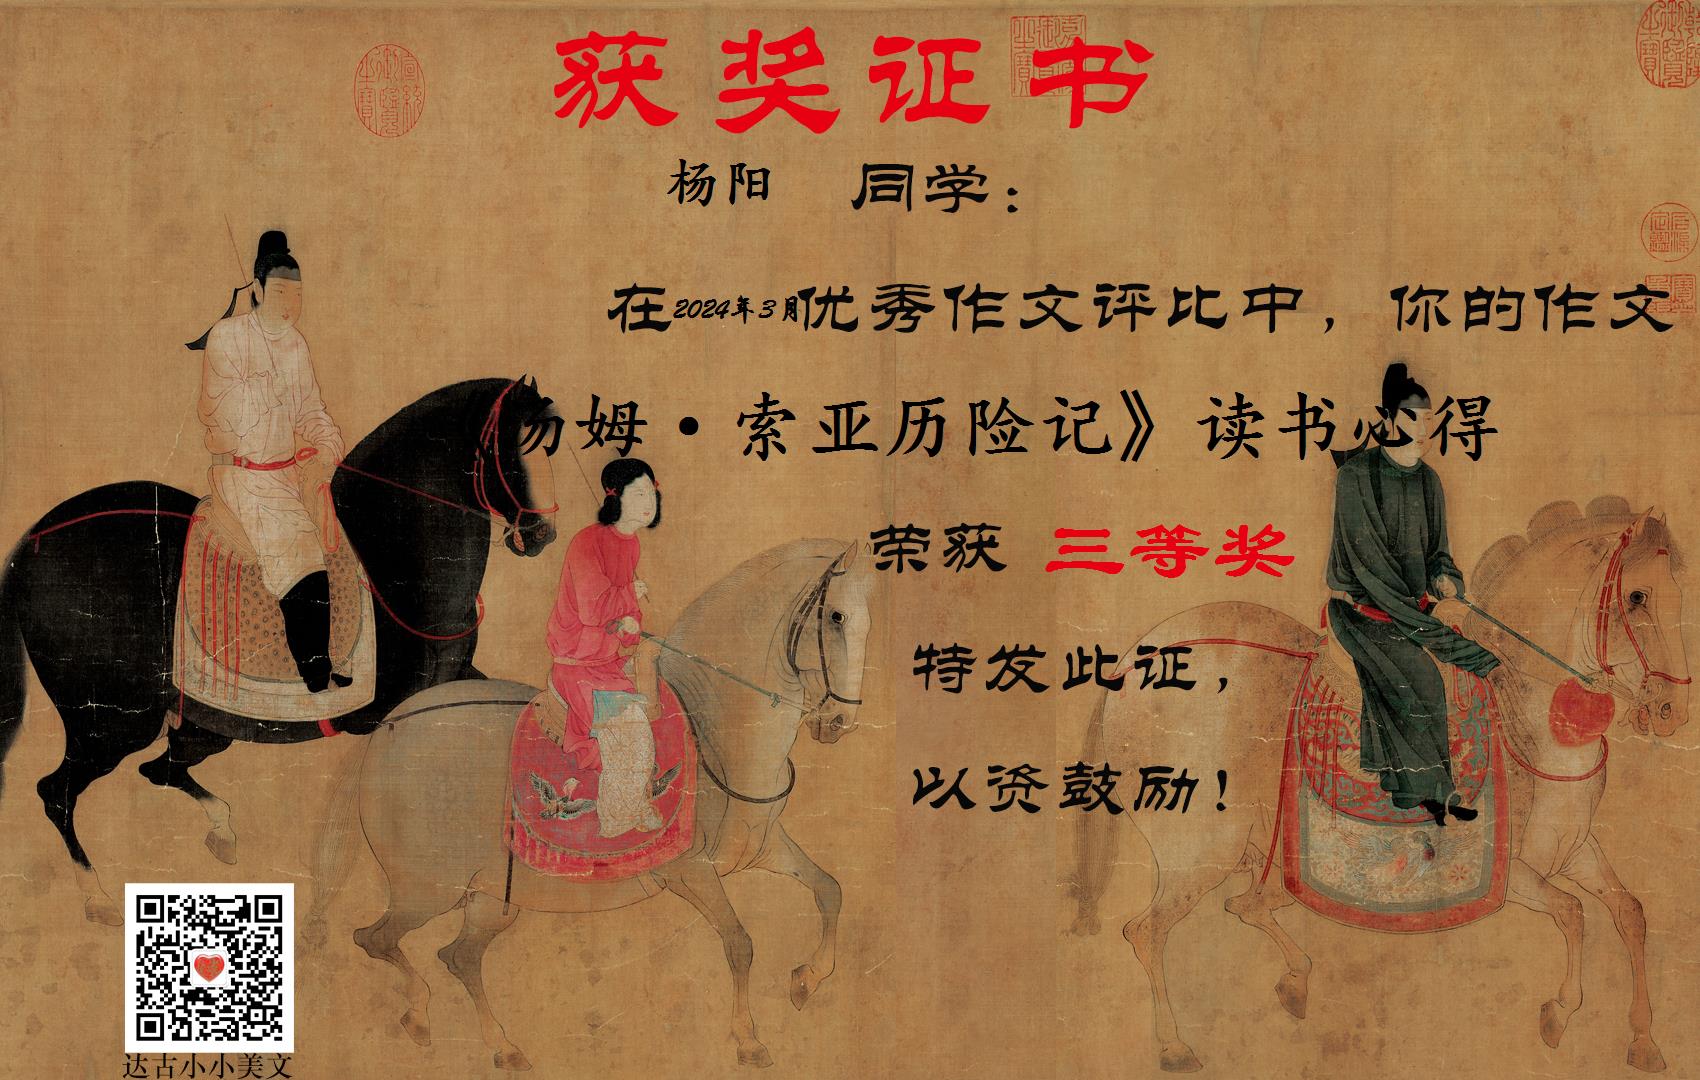 获奖证书
杨阳 同学：
在2024年3月优秀作文评比中，你的作文
汤姆·索亚历险记》读书心得
荣获 三等奖
特发此证，
以资鼓励！
达古小小美文